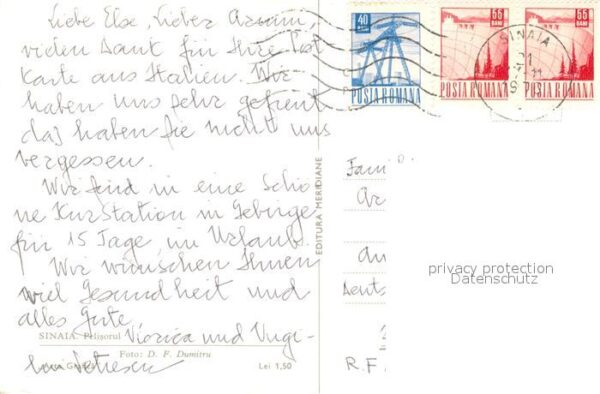 Liebe Else, Lieber Armin,
vielen Dank für Ihre Post
Karte aus Italien. Wir
haben uns sehr gefreut
daß haben Sie nicht uns
vergessen.
Wir sind in eine Schö
ne KurStation in Gebirge
für 15 Tage im Urlaub.
Wir wünschen Ihnen
viel Gesundheit und
alles Gute
Viorica und
Petrescu
SINAIA. Pelișorul
Foto: D. F. Dumitru
Lei 1,50
EDITURA MERIDIANE
40 BANI
POSTA ROMANA
55 BANI
POSTA ROMANA
55 BANI
POSTA ROMANA
SINAIA
Fami
Ar
An
Deuts
R.F.
privacy protection
Datenschutz